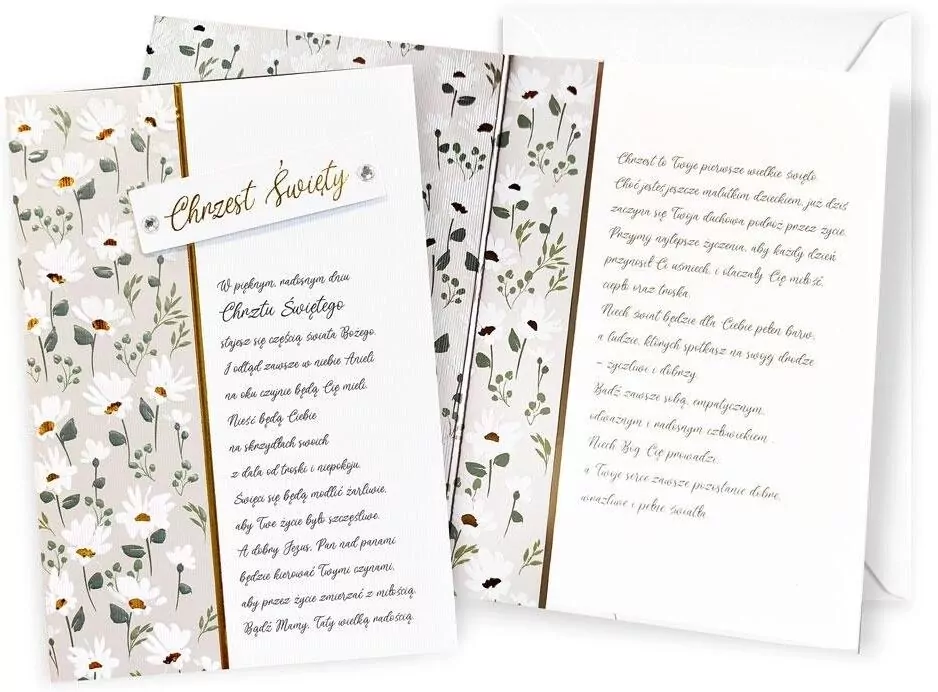 Chrzest Święty
W pięknym, radosnym dniu
Chrztu Świętego
stajesz się częścią świata Bożego.
I odtąd zawsze w niebie Anieli
na oku czujnie będą Cię mieli.
Nieść będą Ciebie
na skrzydłach swoich
z dala od troski i niepokoju.
Święci się będą modlić żarliwie,
aby Twe życie było szczęśliwe.
A dobry Jezus, Pan nad panami
będzie kierować Twymi czynami,
aby przez życie zmierzać z miłością.
Bądź Mamy, Taty wielką radością.
Chrzest to Twoje pierwsze wielkie święto.
Choć jesteś jeszcze malutkim dzieckiem, już dziś
zaczyna się Twoja duchowa podróż przez życie.
Przyjmij najlepsze życzenia, aby każdy dzień
przynosił Ci uśmiech, i otaczały Cię miłość,
ciepło oraz troska.
Niech świat będzie dla Ciebie pełen barw,
a ludzie, których spotkasz na swojej drodze
– życzliwi i dobrzy.
Bądź zawsze sobą, empatycznym,
odważnym i radosnym człowiekiem -
Niech Bóg Cię prowadzi,
a Twoje serce zawsze pozostanie dobre,
wrażliwe i pełne światła.